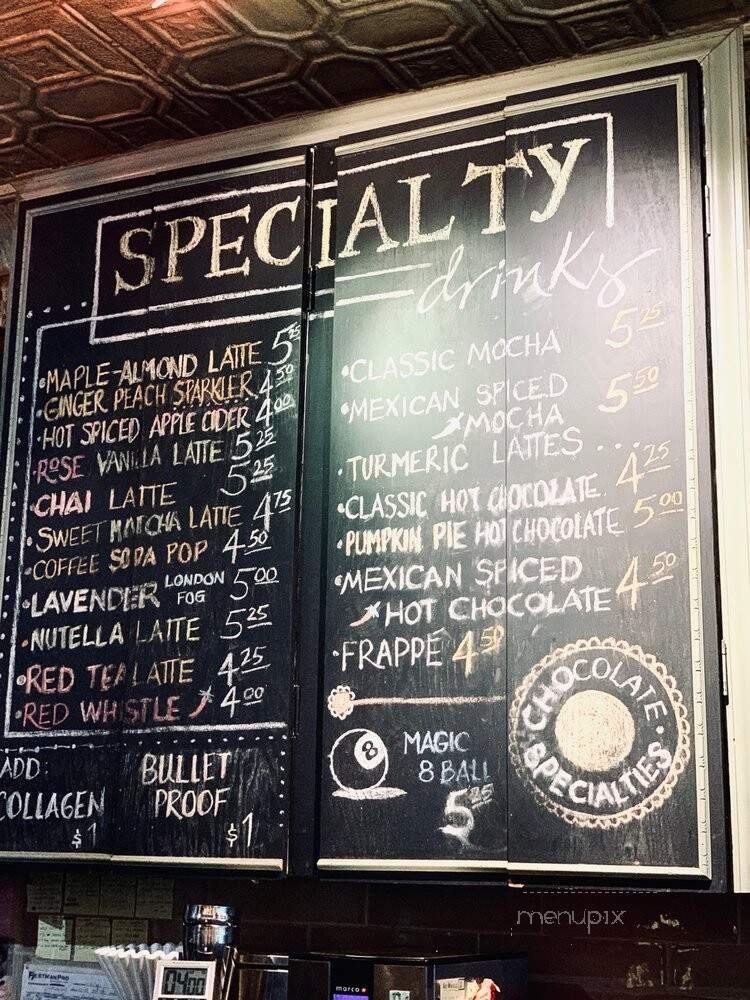 SPECIALTY
drinks
•MAPLE-ALMOND LATTE 5 25
•GINGER PEACH SPARKLER 4 50
•HOT SPICED APPLE CIDER 4 00
•ROSE VANILLA LATTE 5 25
•CHAI LATTE 5 25
•SWEET MATCHA LATTE 4 75
•COFFEE SODA POP 4 50
•LAVENDER LONDON FOG 5 00
•NUTELLA LATTE 5 25
•RED TEA LATTE 4 25
•RED WHISTLE 4 00
ADD:
COLLAGEN
$1
BULLET
PROOF
$1
•CLASSIC MOCHA 5 25
•MEXICAN SPICED 5 50
MOCHA
•TURMERIC LATTES ...
•CLASSIC HOT CHOCOLATE 4 25
•PUMPKIN PIE HOT CHOCOLATE 5 00
•MEXICAN SPICED 4 50
HOT CHOCOLATE
•FRAPPÉ 4 50
8
MAGIC
8 BALL
5 25
CHOCOLATE •
SPECIALTIES
menupix
marco